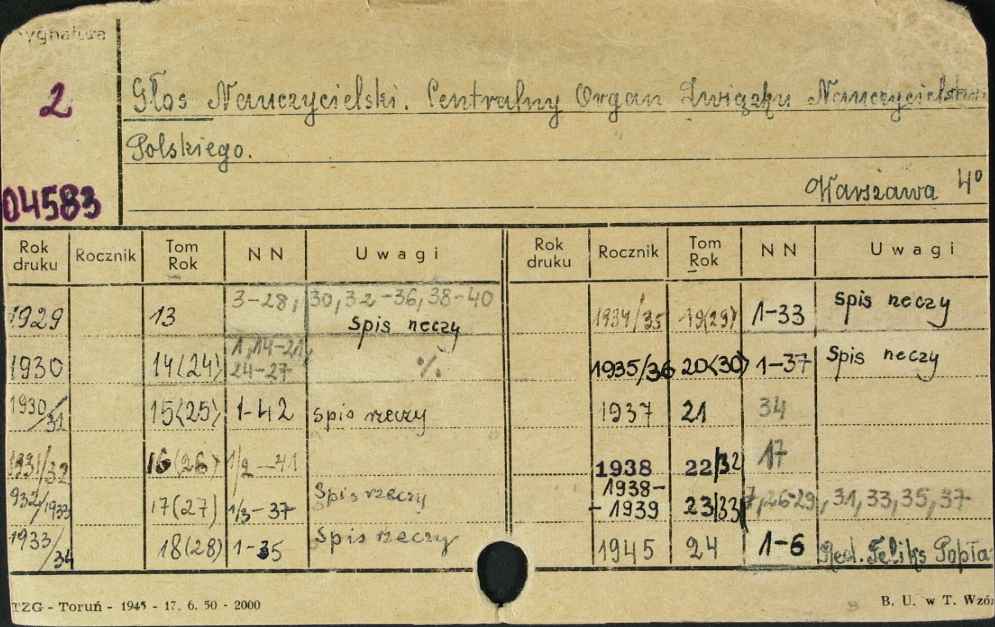 Sygnatura
2
04583
Głos Nauczycielski. Centralny Organ Związku Nauczycielstwa
Polskiego.
Warszawa 4º
Rok druku Rocznik Tom Rok NN Uwagi Rok druku Rocznik Tom Rok NN Uwagi
1929 13 3-28, 30, 32-36, 38-40 spis rzeczy
1930 14(24) 1, 14-21, 24-27 %
1930/31 15(25) 1-42 spis rzeczy
1931/32 16(26) 1/2-41
932/1933 17(27) 1/3-37 Spis rzeczy
1933/34 18(28) 1-35 Spis rzeczy
1934/35 19(29) 1-33 spis rzeczy
1935/36 20(30) 1-37 spis rzeczy
1937 21 34
1938 22/32 17
1938-
-1939 23/33 7, 26-29, 31, 33, 35, 37
1945 24 1-6 Red. Feliks Popła
TZG - Toruń - 1945 - 17. 6. 50 - 2000
B. U. w T. Wzór